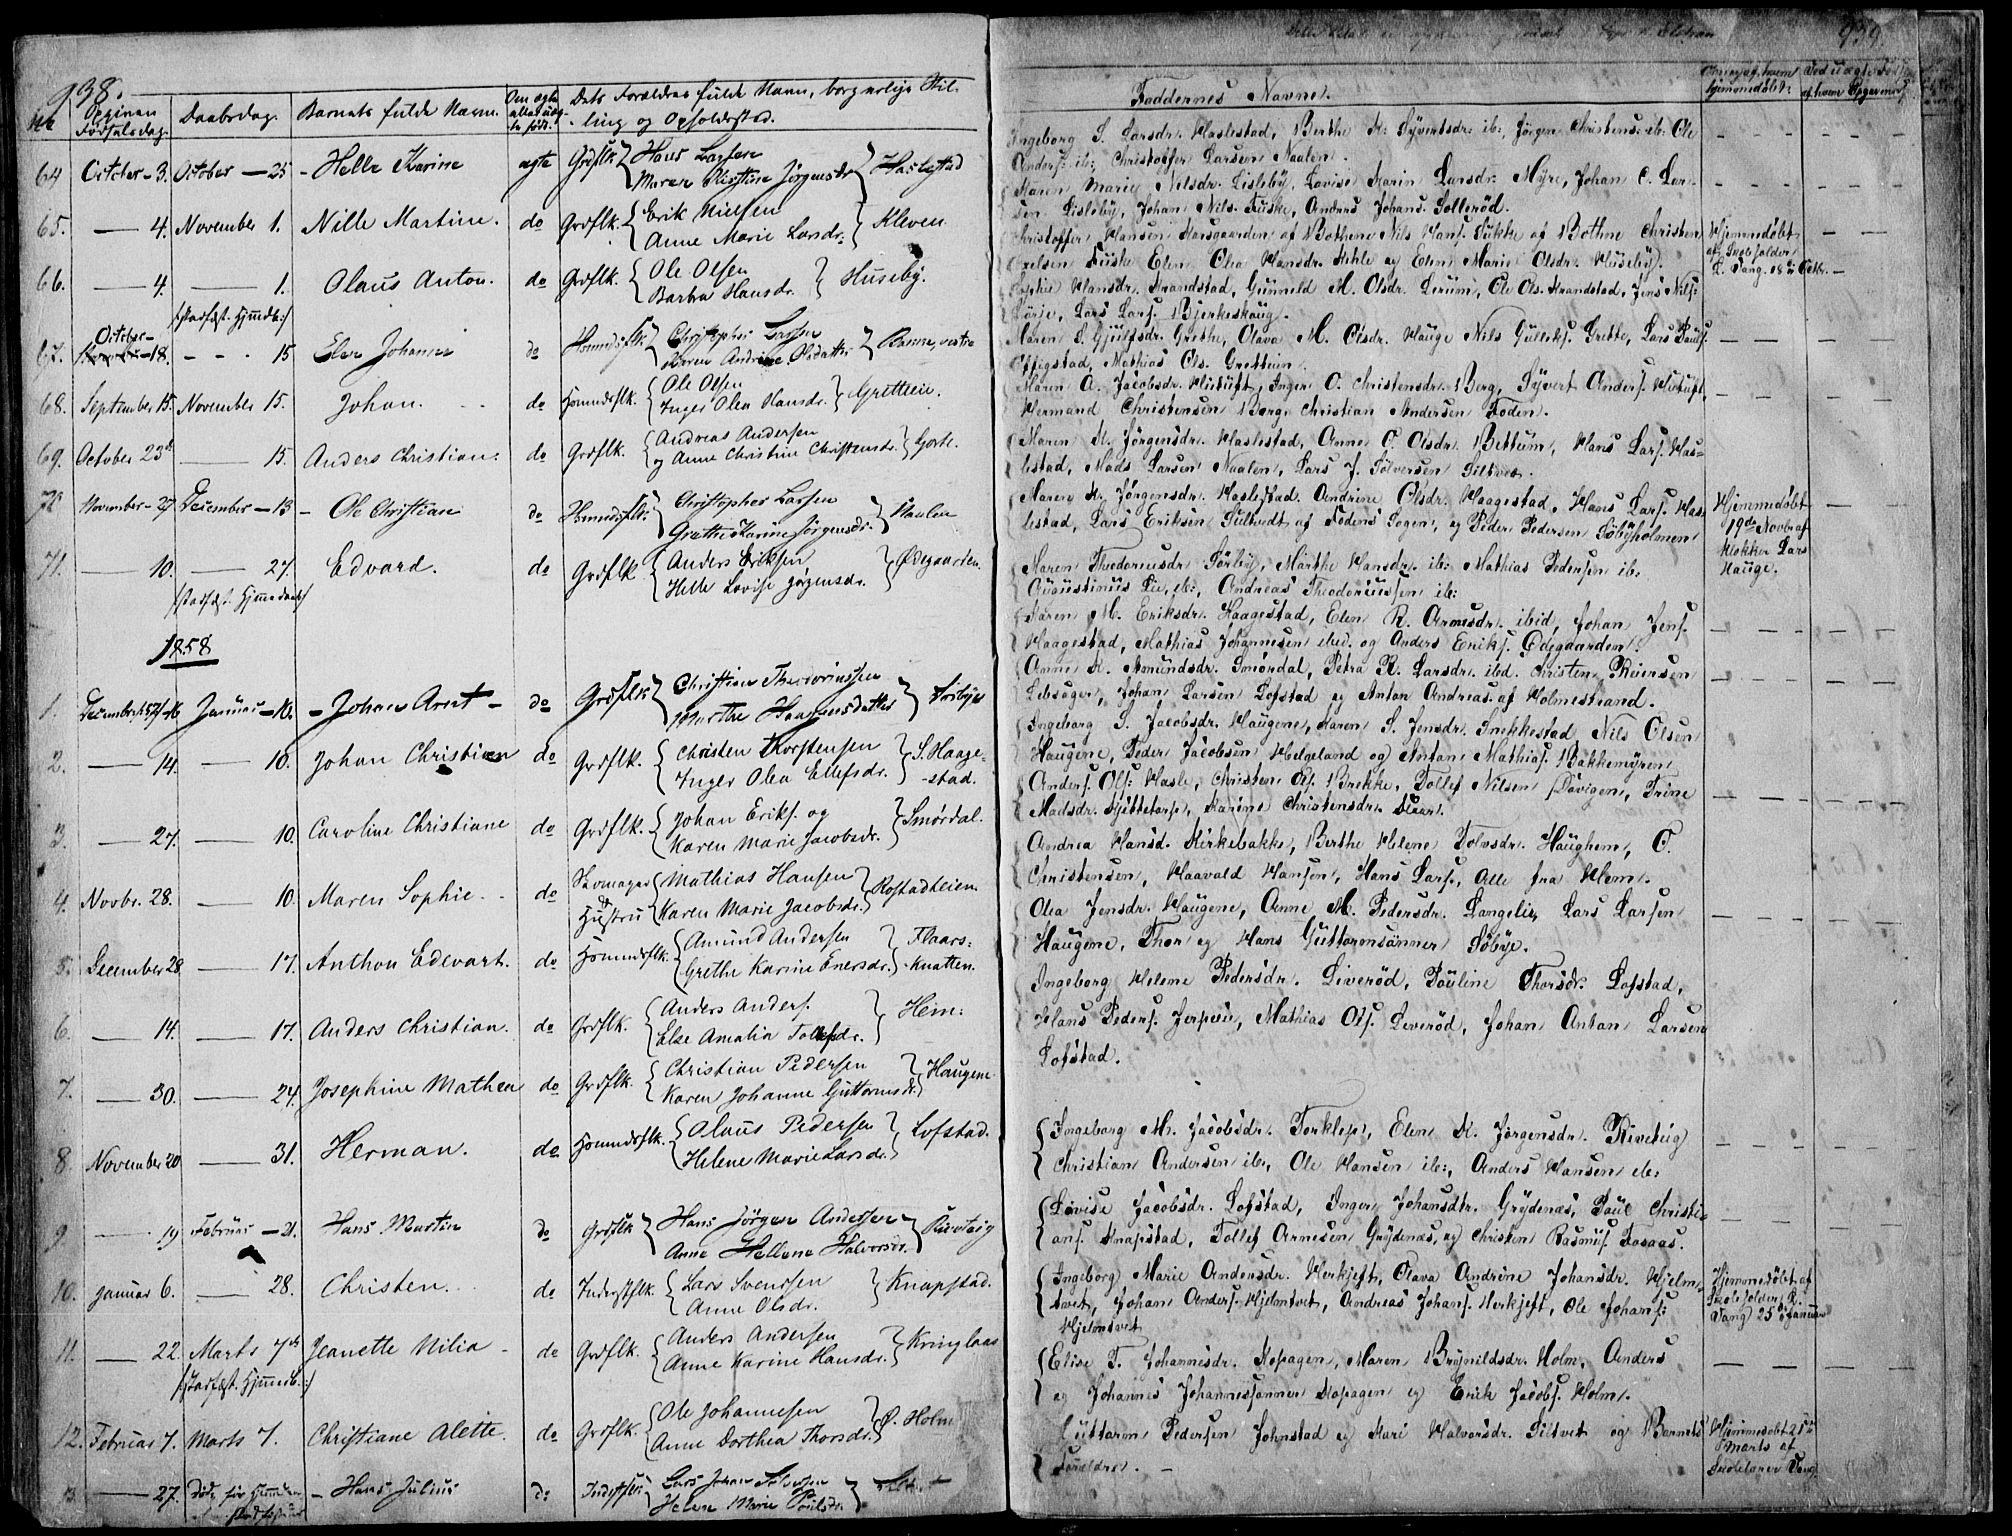 938.
No
Opgiven Fødselsdag.
Daabsdag.
Barnets fulde Navn.
Om ægte eller uægte født.
Dets Forældres fulde Navn, borgerlige Stilling og Opholdssted.
64 October - 3. October - 25 - Helle Karine ægte Grdflk. Hans Larsen Haslestad
Maren Kirstine Jørgensdr.
65. — 4. November 1. Nille Martine. do Grdflk. Erik Nielsen Kleven
Anne Marie Larsdr.
66. — 4. — 1. Olaus Anton. do Grdflk. Ole Olsen Huseby.
/: stadfæst. Hjmdb :/ Barbra Hansdr.
67. October - 18. - - - 15 Elen Johanne do Hsmndsflk. Christopher Larsen vestre
Karen Andrine Olsdatter
68. September 15. November 15. Johan. do Hsmndsflk. Ole Olsen Gretteie.
Inger Olea Hansdr.
69. October 23d — 15. Anders Christian. do Grdflk. Andreas Andersen
og Anne Christine Christensdr.
70 November - 27 December - 13 - Ole Christian do Hsmndsflk. Christopher Larsen Naalen
Grethe Karine Jørgensdr.
71. — 10. — 27. Edvard. do Grdflk Anders Eriksen Ødegaarden.
/: stadfæst. Hjmmedaab :/ Helle Lovise Jørgensdr.
1858
1. December 57 - 16 Januar - 10. - Johan Arnt - do Grdflk Christian Theodoriussen Sørbye
Marthe Haagensdatter
2. — 14. — 10. Johan Christian do Grdflk. Christen Thorstensen S. Haage-
Inger Olea Ellefsdr. -stad.
3. — 27. — 10. Caroline Christiane do Grdflk. Johan Eriks. og Smørdal.
Karen Marie Jacobsdr.
4. Novbr. 28. — 10. Maren Sophie. do Skomager Mathias Hansen Rostadteien
& Hustru Karen Marie Jacobsdr.
5. December 28 — 17. Anthon Edevart. do Hsmndsflk. Amund Andersen Flaars-
Grethe Karine Enersdr. -Knatten.
6. — 14. — 17. Anders Christian. do Grdflk. Anders Anders. Hem:
Else Amalia Tollefsdr.
7. — 30. — 24. Josephine Mathea do Grdflk. Christian Pedersen Haugene
Karen Johanne Guttormsdr.
8. November 20 — 31. Herman. do Hsmndsflk. Olaus Pedersen Lofstad.
Helene Marie Larsdr.
9 — 19 Februar - 21. Hans Martin do Grdflk Hans Jørgen Andersen Riveteig
Anne Hellene Halvorsdr.
10. Januar 6. — 28. Christen. do Inderstflk. Lars Svensen Knapstad.
Anne Olsdr.
11. — 22. Marts 7de Jeanette Nilia - do Grdflk. Anders Andersen Kringlaas
/: stadfæst. Hjmmeb. :/ Anne Karine Hansdr.
12. Februar 7. Marts 7. Christiane Alette. do Grdflk. Ole Johannesen Ø. Holm
Anne Dorthea Thorsdr.
13. — 27. Døde før - Hans Julius do Lars Johan
Helene Marie Poulsdr.
939.
Faddernes Navne.
Ingeborg S. Larsdr. Haslestad, Berthe K. Syvertsdr. ib:, Jørgen Christens. ib: Ole
Anders. ib:, Christoffer Larsen Naalen.
Maren Marie Nilsdr. Lisleby, Lovise Marin Larsdr. Myre, Johan C. Lar-
sen Lisleby, Johan Nils. Fuske, Anders Johans. Sollerød.
Christoffer Hansen Hansgaarden af Bothne Nils Hans. Fukke af Bothne Christen
Axelsen Fuske Elen Olea Hansdr. og Elen Marie Olsdr. Huseby. Hjemmedøbt af Skoleholder L. Vang. 18de Octb.
Sophie Hansdr. Krandstad, Gunneld M. Olsdr. Lerum, Ole Ols. Krandstad, Jens Nils:
Lørie, Lars Lars. Bjerkeskaug.
Maren S. Gjulfsdr. Grethe, Olava M. Olsdr. Hauge Nils Gulliks. Grette, Lars Pauls.
Effigstad, Mathias Ols. Gretteien.
Maren A. Jacobsdr. Hixtuft, Inger O. Christensdr. Berg, Syvert Anders. Hixtuft,
Hermand Christensen Berg, Christian Andersen Foden.
Maren K. Jørgensdr. Haslestad, Anne O. Olsdr. Bettum, Hans Lars. Has-
lestad, Mads Larsen Naalen, Lars J. Sølversen Tiltvet.
Maren K. Jørgensdr. Haslestad. Andrine Olsdr. Haagestad, Hans Lars. Has-
lestad, Lars Eriksen af Sogn, og Peder Pedersen Søbyholmen Hjemmedøbt 19de Novbr af Klokker Lars Hauge.
Maren Theodoriusdr. Sørby, Marthe Hansdr. ib: Mathias Pedersen ib:
Augustinus Lie, ib:, Andreas Theodoriussen ib:
Karen M. Eriksdr. Haagestad, Elen R. Arnesdr. ibid, Johan Jens.
Haagestad, Mathias Johannesen ibid. og Anders Eriks. Ødegaarden.
Anne K. Amundsdr. Smørdal, Petra R. Larsdr. ibd. Christen Reiersen
Johan Larsen Lofstad og Anton Andreas. af Holmestrand.
Ingeborg S. Jacobsdr. Haugene, Karen S. Jensdr. Snekkestad Nils Olsen
Haugene, Peder Jacobsen Helgeland og Anton Mathias. Bakkemyren
Anders. Ols: Hasle, Christen Ols. Brekke, Tollef Nilsen Døvigen, Trine
Madsdr. Karine Christensdr.
Andrea Hansd. Kirkebakke, Berthe Helene Tolvsdr. Haughem, O.
Christensen, Haavald Hansen, Hans Lars., Alle fra Hem.
Olea Jensdr. Haugene, Anne M. Pedersdr. Langelie, Lars Larsen
Haugene, Thor og Hans Guttormsønner Søbye.
Ingeborg Helene Pedersdr. Liverød, Pauline Thorsdr. Lofstad,
Hans Peders. Mathias Ols. Leverød, Johan Anton Larsen
Lofstad.
Ingeborg M. Jacobsdr. Torklep, Elen K. Jørgensdr. Riveteig
Christian Andersen ib:, Ole Hansen ib:, Anders Hansen ib:
Lovise Jacobsdr. Lofstad, Inger Johansdtr. Grydenæs, Paul Christi-
ans. Knapstad, Tollef Arnesen Grydenæs, og Christen Rasmus. Fosaas.
Ingeborg Marie Andersdr. Herkjeft, Olava Andrine Johansdr. Hjelm-
tvet, Johan Anders. Hjelmtvet, Andreas Johans. Herkjeft, Ole Johans:
Hjelmtvet Hjemmedøbt af Skoleholder R. Vang 25de Januar
Elise T. Johannesdr. Kopagen, Maren Brynildsdr. Holm, Anders
og Johannes Johannessønner Kopagen og Erik Jacobs. Holm.
Guttorm Pedersen Johnstad og Kari Halvorsdr. Tiltvet og Barnets
Forældre. Hjemmedøbt Marts af Vang